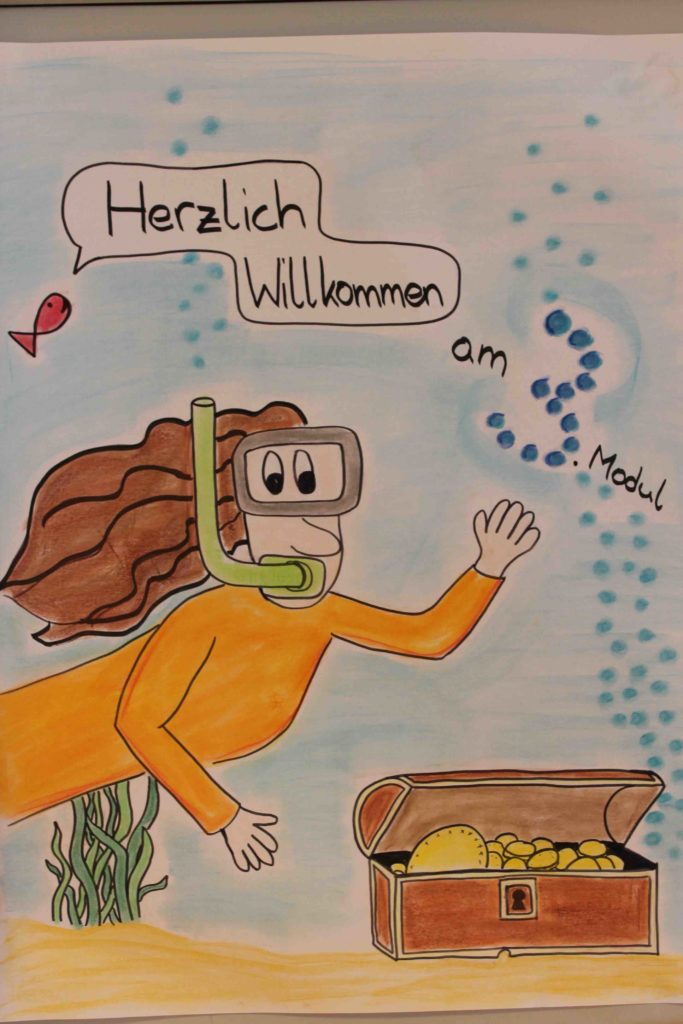 Herzlich
Willkommen
am 3. Modul